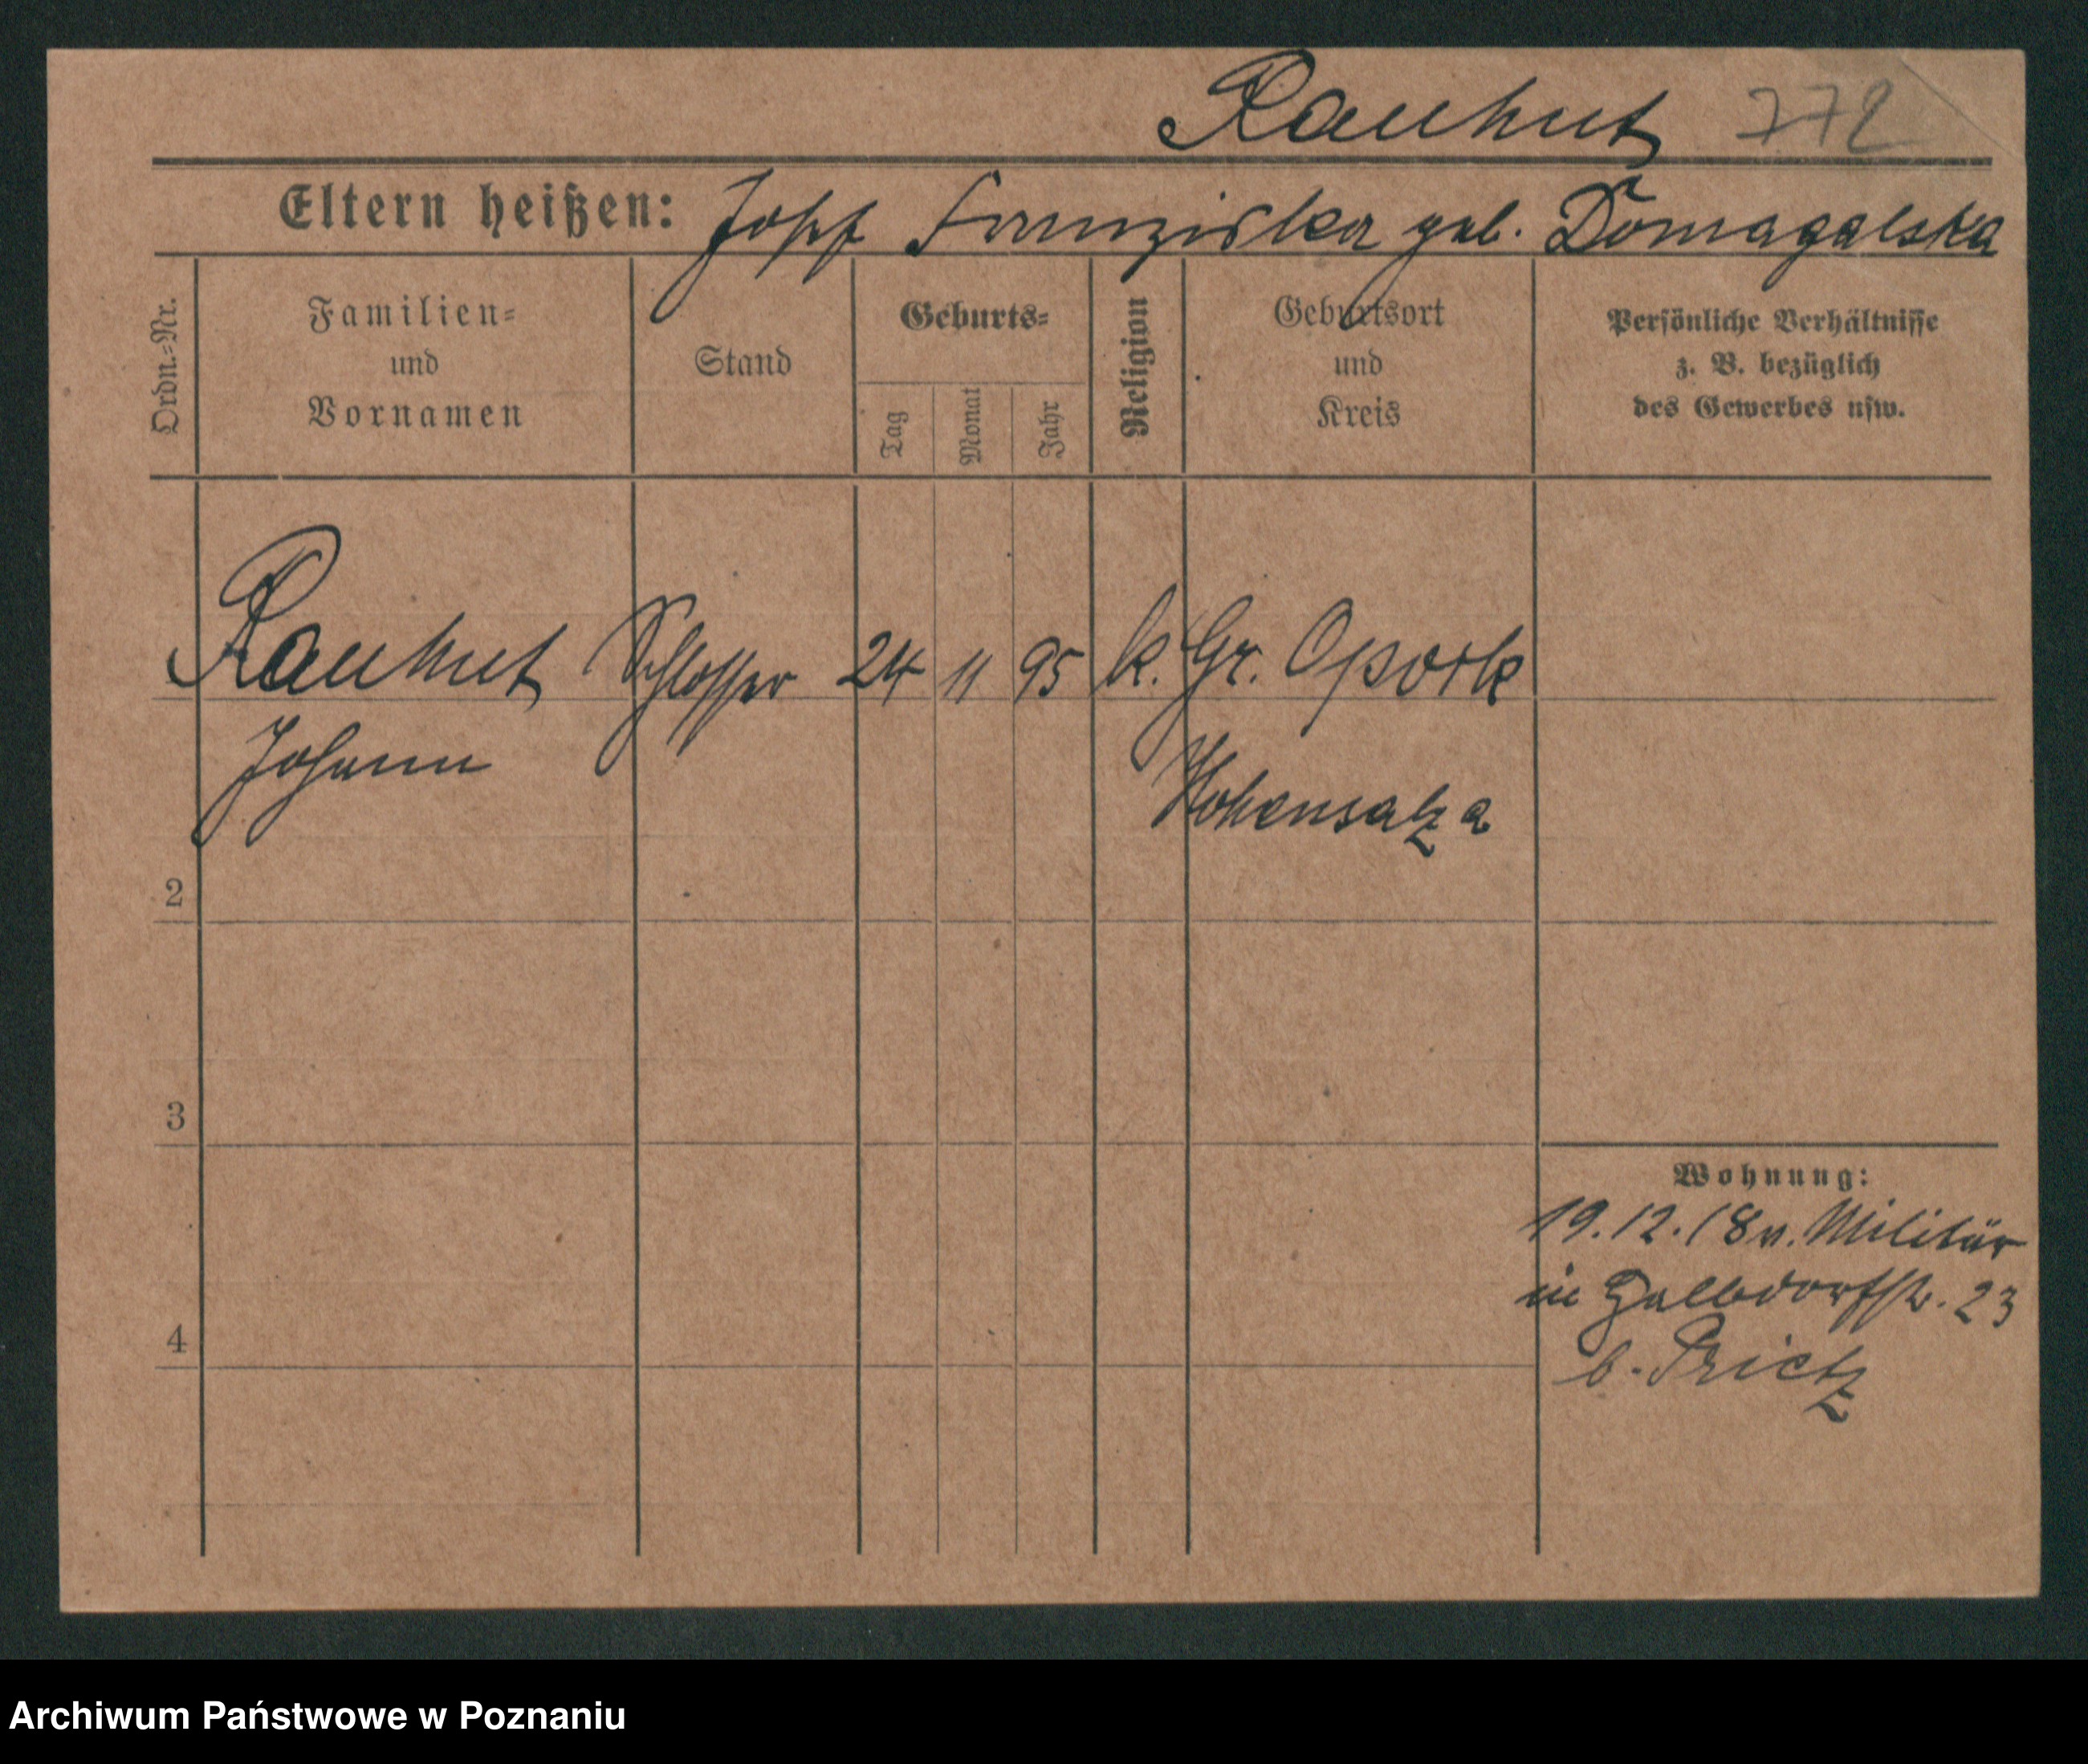 Rauhut 772
Eltern heißen: Josef Franziska geb. Domagalska
Ordn.=Nr.
Familien=
und
Vornamen
Stand
Geburts=
Tag
Monat
Jahr
Religion
Geburtsort
und
Kreis
Persönliche Verhältnisse
z. B. bezüglich
des Gewerbes usw.
Rauhut Schlosser 24 11 95 k. Gr. Opork
Johann
Hohensalza
2
3
4
Wohnung:
19.12.18 v. Militär
in 23
b. Prietz
Archiwum Państwowe w Poznaniu